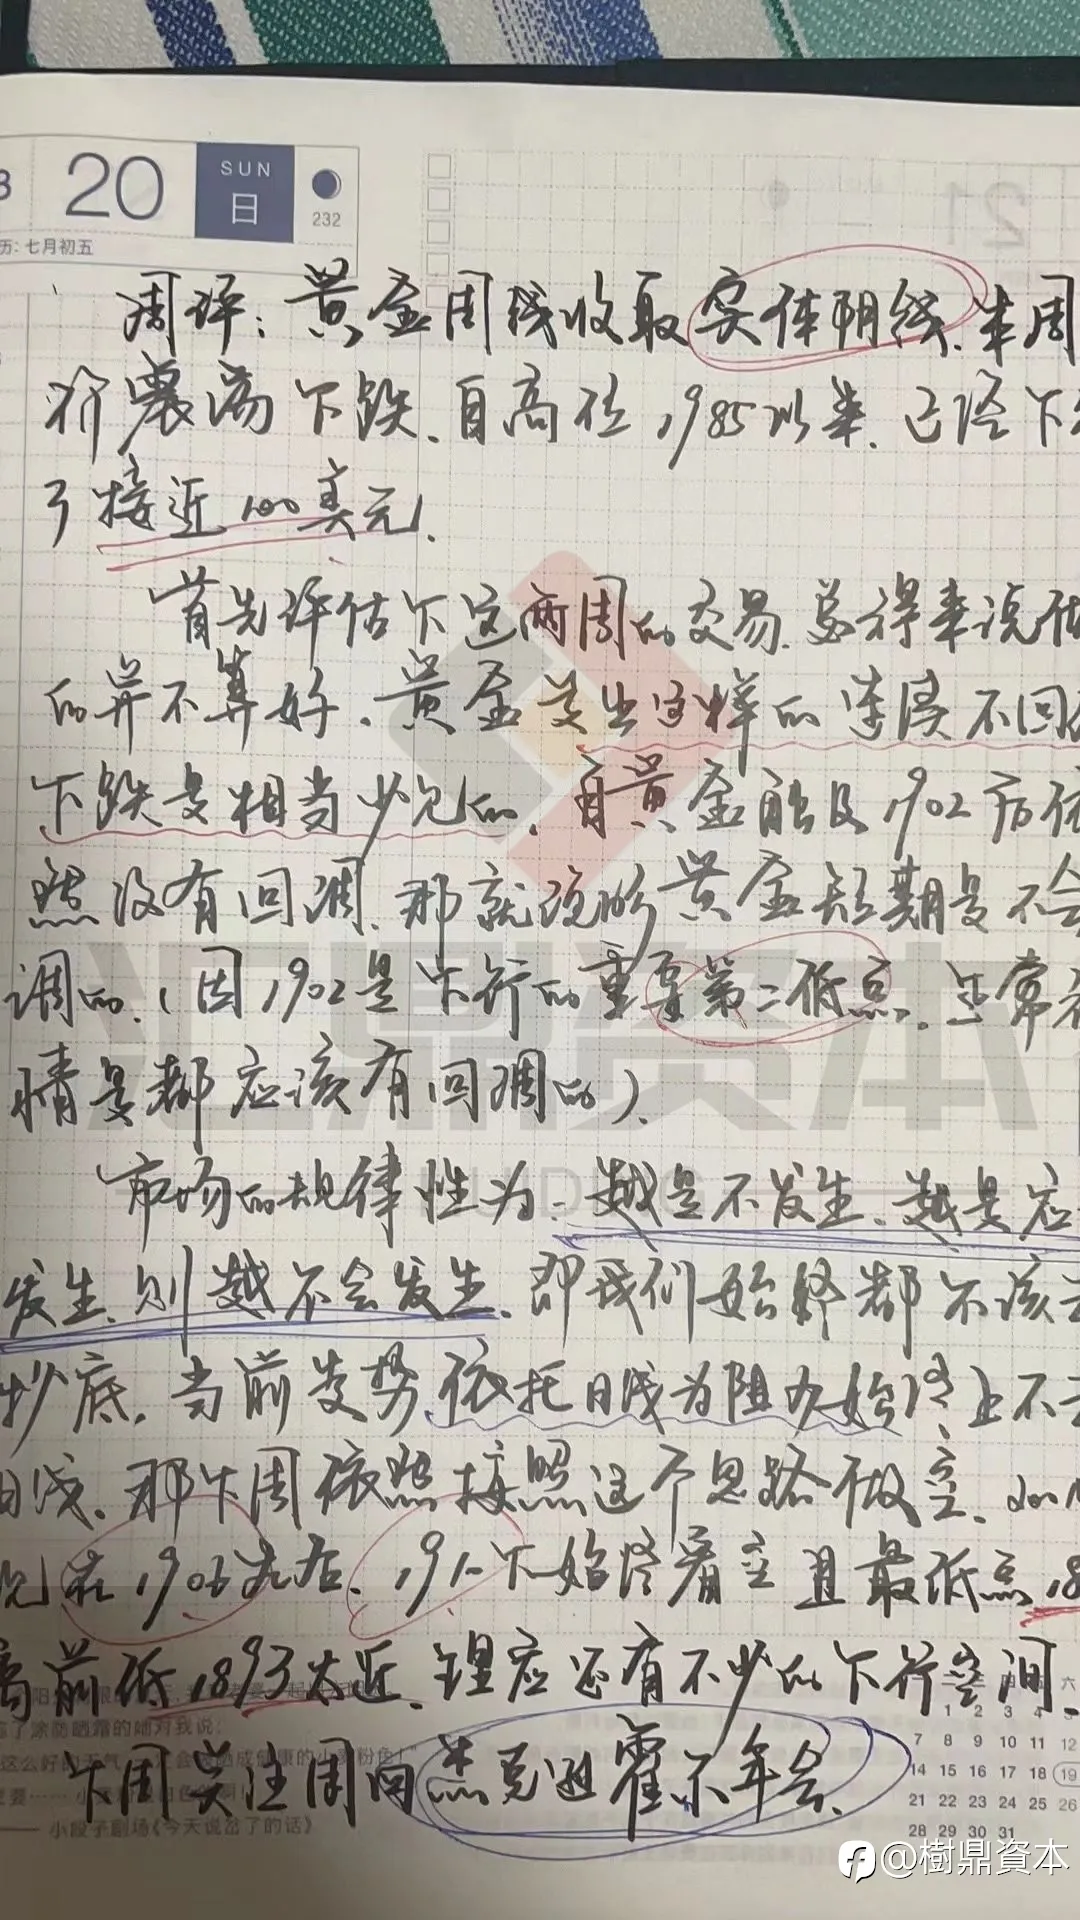 20
SUN
日
232
七月初五
周评：黄金周线收取实体阴线.本周
行震荡下跌.自高位1985以来.已经下
了接近100美元.
首先评估下这两周的交易.总得来说做
的并不算好.黄金发生这样的连续不回
下跌是相当少见的.自黄金触及1902后依
然没有回调.那就说明黄金短期是不会
调的.(因1902是下行的重要第二低点.正常
情是都应该有回调的).
市场的规律性为:越是不发生.越是应
发生.则越不会发生.即我们始终都不该去
抄底.当前走势.依托日线为阻力始终上不去
日线.那下周依然按照这个思路做空.
在190 左右.191 下始终看空且最低点18
离前低1893太近.理应还有不少的下行空间.
下周关注周间杰克逊霍尔年会.
小段子剧场《今天说岔了的话》
1 2 3 4
7 8 9 10 11 12
14 15 16 17 18 19
21 22 23 24 25 26
28 29 30 31
汇鼎资本
@樹鼎資本